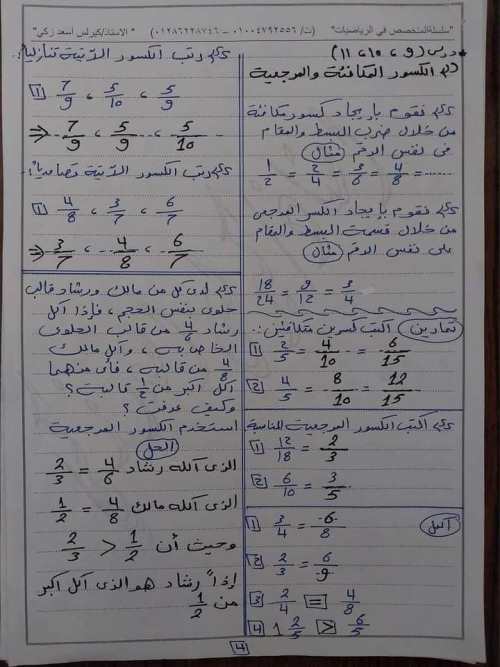 "سلسلة المتخصص في الرياضيات" (ت/ ٠١٠٠٤٧٩٢٥٥٦ – ٠١٢٨٦٢٢٨٧٤٦) "الاستاذ/كيرلس أسعد زكي"
درس (٩، ١٠، ١١)
الكسور المتكافئة والمرجعية
نقوم بإيجاد كسور مكافئة
من خلال ضرب البسط والمقام
فى نفس الرقم (مثال)
1/2 = 2/4 = 3/6 = 4/8 = ......
نقوم بإيجاد الكسر المرجعى
من خلال قسمة البسط والمقام
على نفس الرقم (مثال)
18/24 = 9/12 = 3/4
تمارين اكتب كسرين متكافئين :-
1) 2/5 = 4/10 = 6/15
2) 4/5 = 8/10 = 12/15
اكتب الكسور المرجعية المناسبة
1) 12/18 = 2/3
2) 6/10 = 3/5
أكمل
1 3/4 = 6/8
2 2/3 = 6/9
3 2/4 = 4/8
4 1 2/5 > 6/5
رتب الكسور الآتية تنازلياً :
1 7/9 ، 5/10 ، 5/9
⇒ 7/9 ، 5/9 ، 5/10
رتب الكسور الآتية تصاعدياً :
1 4/8 ، 3/7 ، 6/7
⇒ 3/7 ، 4/8 ، 6/7
لدى كل من مالك ورشاد قالب
حلوى بنفس الحجم ، فإذا أكل
رشاد 4/6 من قالب الحلوى
الخاص به ، وأكل مالك
4/8 من قالبه ، فأى منهما
أكل أكبر من 1/2 قالبه ؟
وكيف عرفت ؟
استخدم الكسور المرجعية
الحل
الذى أكله رشاد 4/6 = 2/3
الذى أكله مالك 4/8 = 1/2
وحيث أن 1/2 < 2/3
إذاً رشاد هو الذى أكل أكبر
من 1/2
4